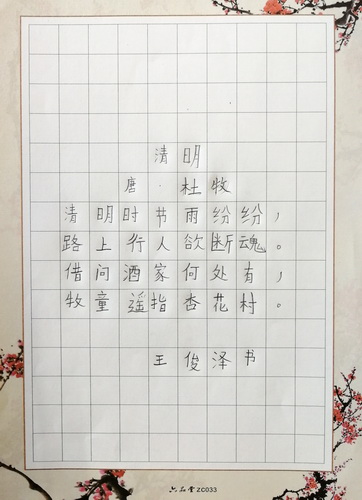 清明
唐·杜牧
清明时书雨纷纷，
路上行人欲断魂。
借问酒家何处有，
牧童遥指杏花村。
王俊泽书
六品堂 ZC033